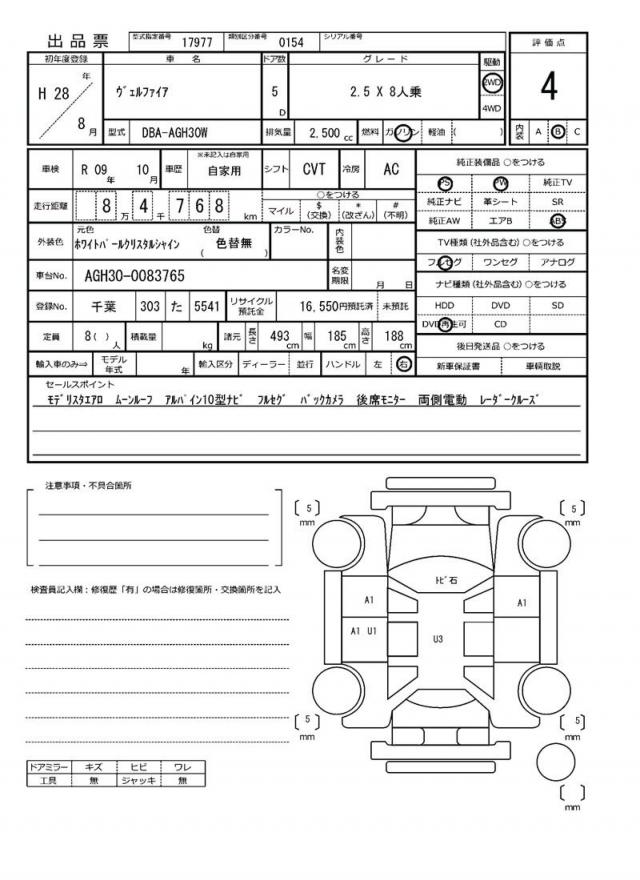 出品票 型式指定番号 17977 類別区分番号 0154 シリアル番号
評価点
4
内装 A B C
初年度登録 車名 ドア数 グレード 駆動
H 28 年 8 月
ヴェルファイア 5 D 2.5 X 8人乗 2WD 4WD
型式 DBA-AGH30W 排気量 2,500 cc 燃料 ガソリン 軽油 ( )
車検 R 09 年 10 月 車歴 ※未記入は自家用 自家用 シフト CVT 冷房 AC
走行距離 8 万 4 千 7 6 8 km
○をつける
マイル $ (交換) * (改ざん) # (不明)
外装色 元色 ホワイトパールクリスタルシャイン 色替 ( 色替無 ) カラーNo. 内装色
車台No. AGH30-0083765 名変期限 月 日
登録No. 千葉 303 た 5541 リサイクル預託金 16,550円預託済 未預託
定員 8( ) 人 積載量 kg 諸元 長さ 493 cm 幅 185 cm 高さ 188 cm
輸入車のみ⇒ モデル年式 年 輸入区分 ディーラー 並行 ハンドル 左 右
純正装備品 ○をつける
PS PW 純正TV
純正ナビ 革シート SR
純正AW エアB ABS
TV種類(社外品含む) ○をつける
フルセグ ワンセグ アナログ
ナビ種類(社外品含む) ○をつける
HDD DVD SD
DVD再生可 CD
後日発送品 ○をつける
新車保証書 車輌取説
セールスポイント
モデリスタエアロ ムーンルーフ アルパイン10型ナビ フルセグ バックカメラ 後席モニター 両側電動 レーダークルーズ
注意事項・不具合箇所
検査員記入欄:修復歴「有」の場合は修復箇所・交換箇所を記入
ドアミラー キズ ヒビ ワレ
工具 無 ジャッキ 無
5 mm
5 mm
トビ石
A1 A1
A1 U1 U3
5 mm
5 mm
mm